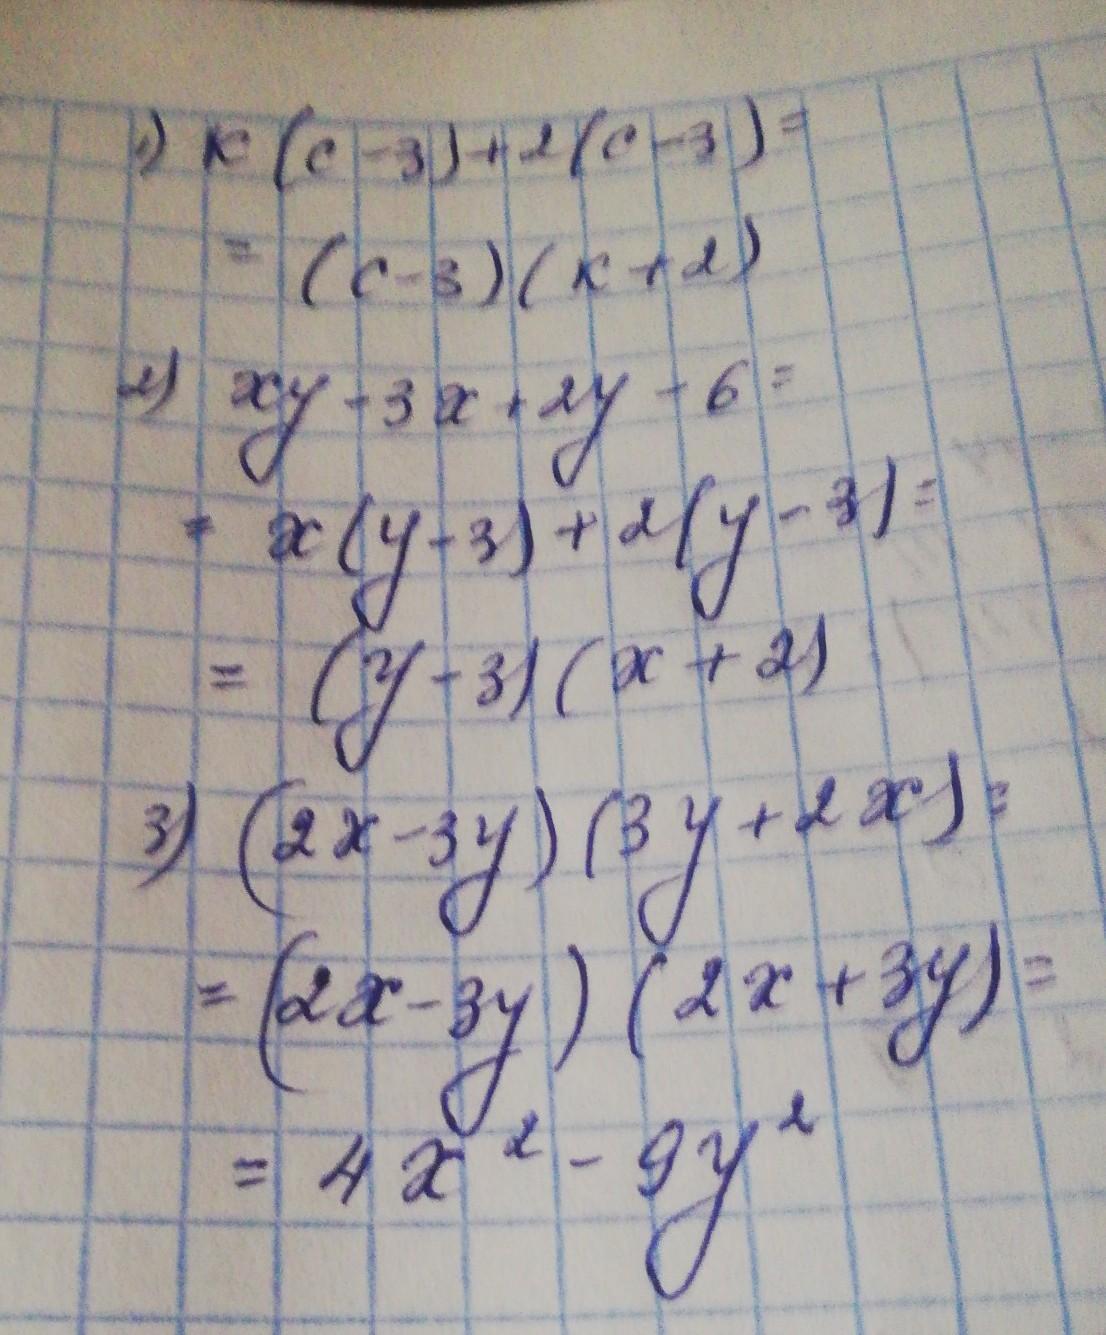 1) к(с-3)+2(с-3)=
= (с-3)(к+2)
2) xy-3x+2y-6=
= x(y-3)+2(y-3)=
= (y-3)(x+2)
3) (2x-3y)(3y+2x)=
= (2x-3y)(2x+3y)=
= 4x²-9y²